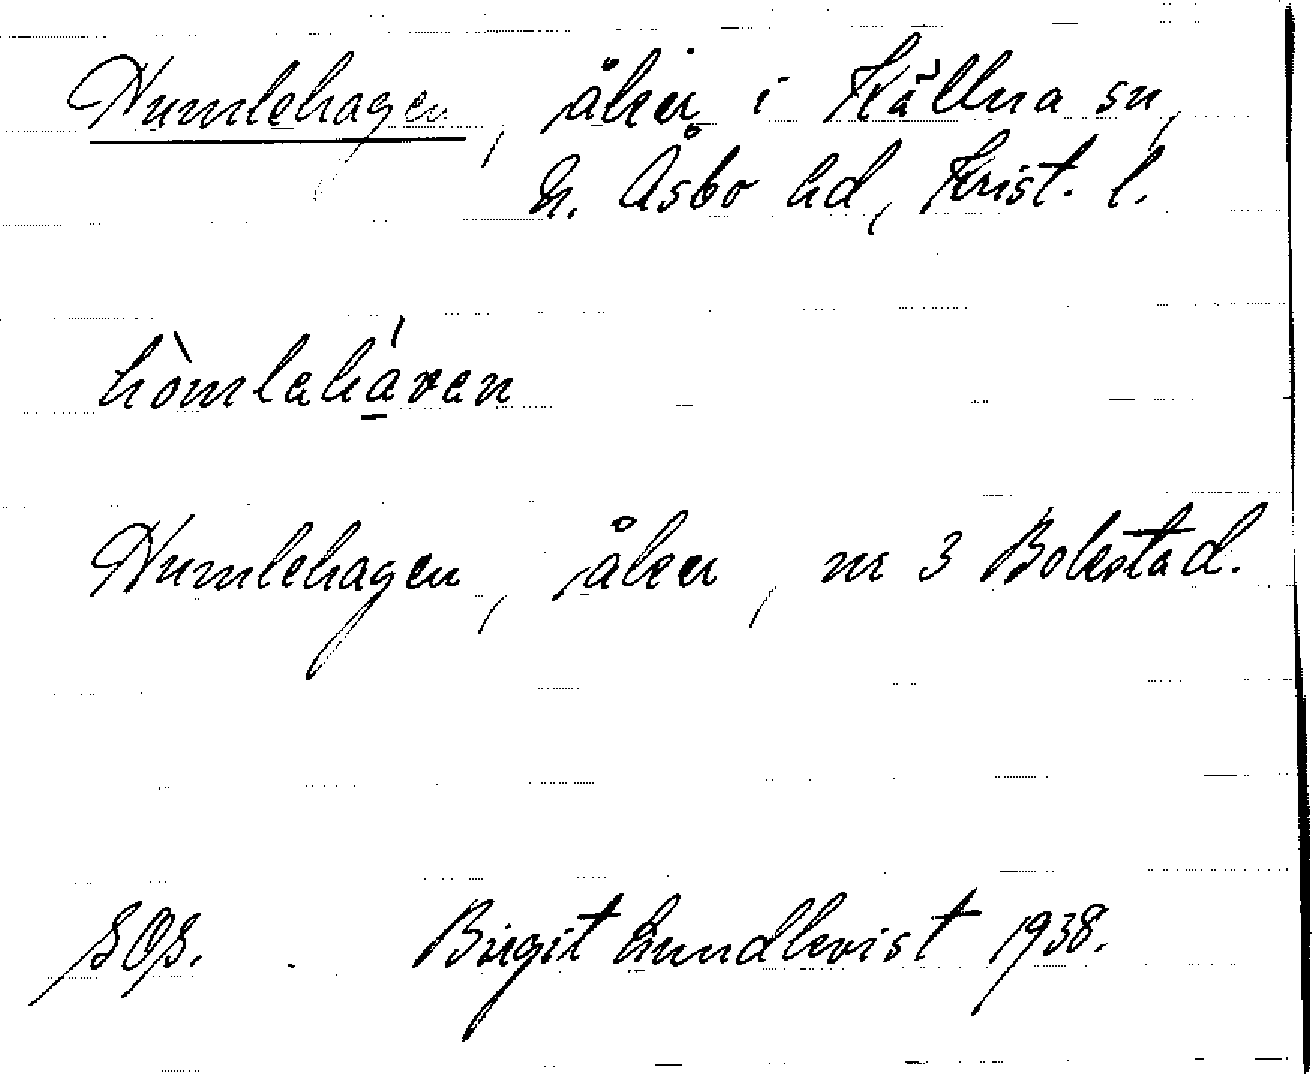 Humlehagen, åker i Källna sn,
N. Åsbo hd, Krist. l.
hòmlahá̱ven
Humlehagen, åker, nr 3 Bokestad.
Birgit Lundkvist 1938.